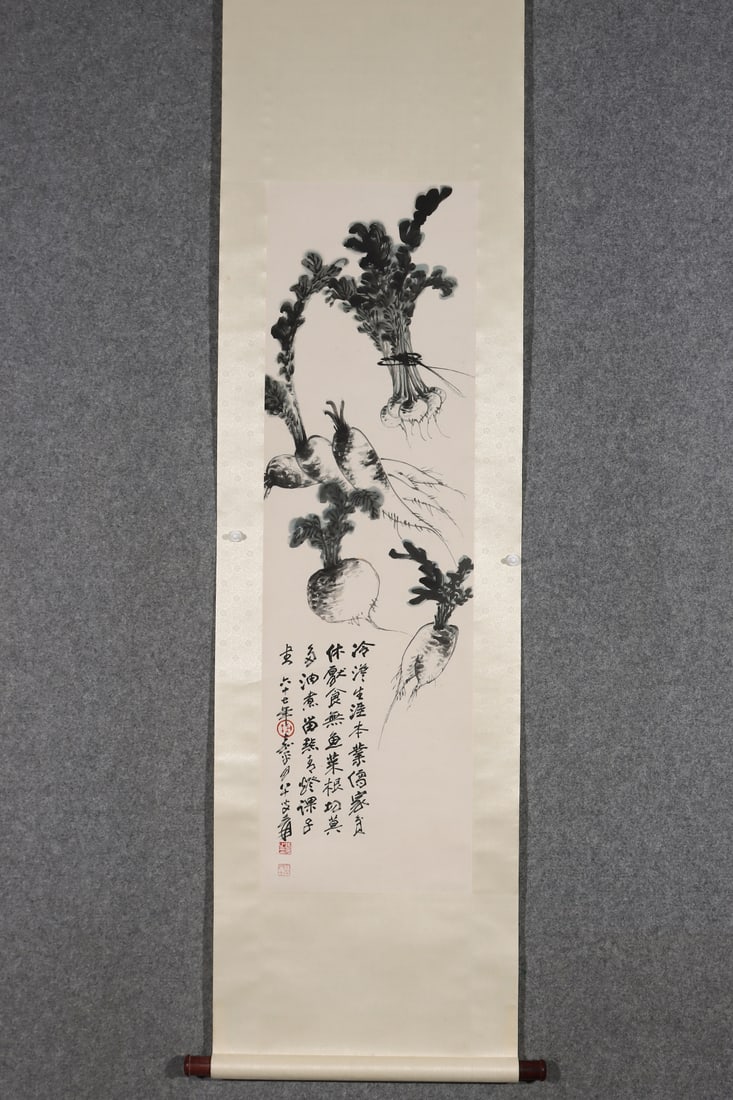 冷澹生涯本業儒家貧
休厭食無魚菜根切莫
多油煮留點青燈課子
書 六十七年嘉平月 叟爰